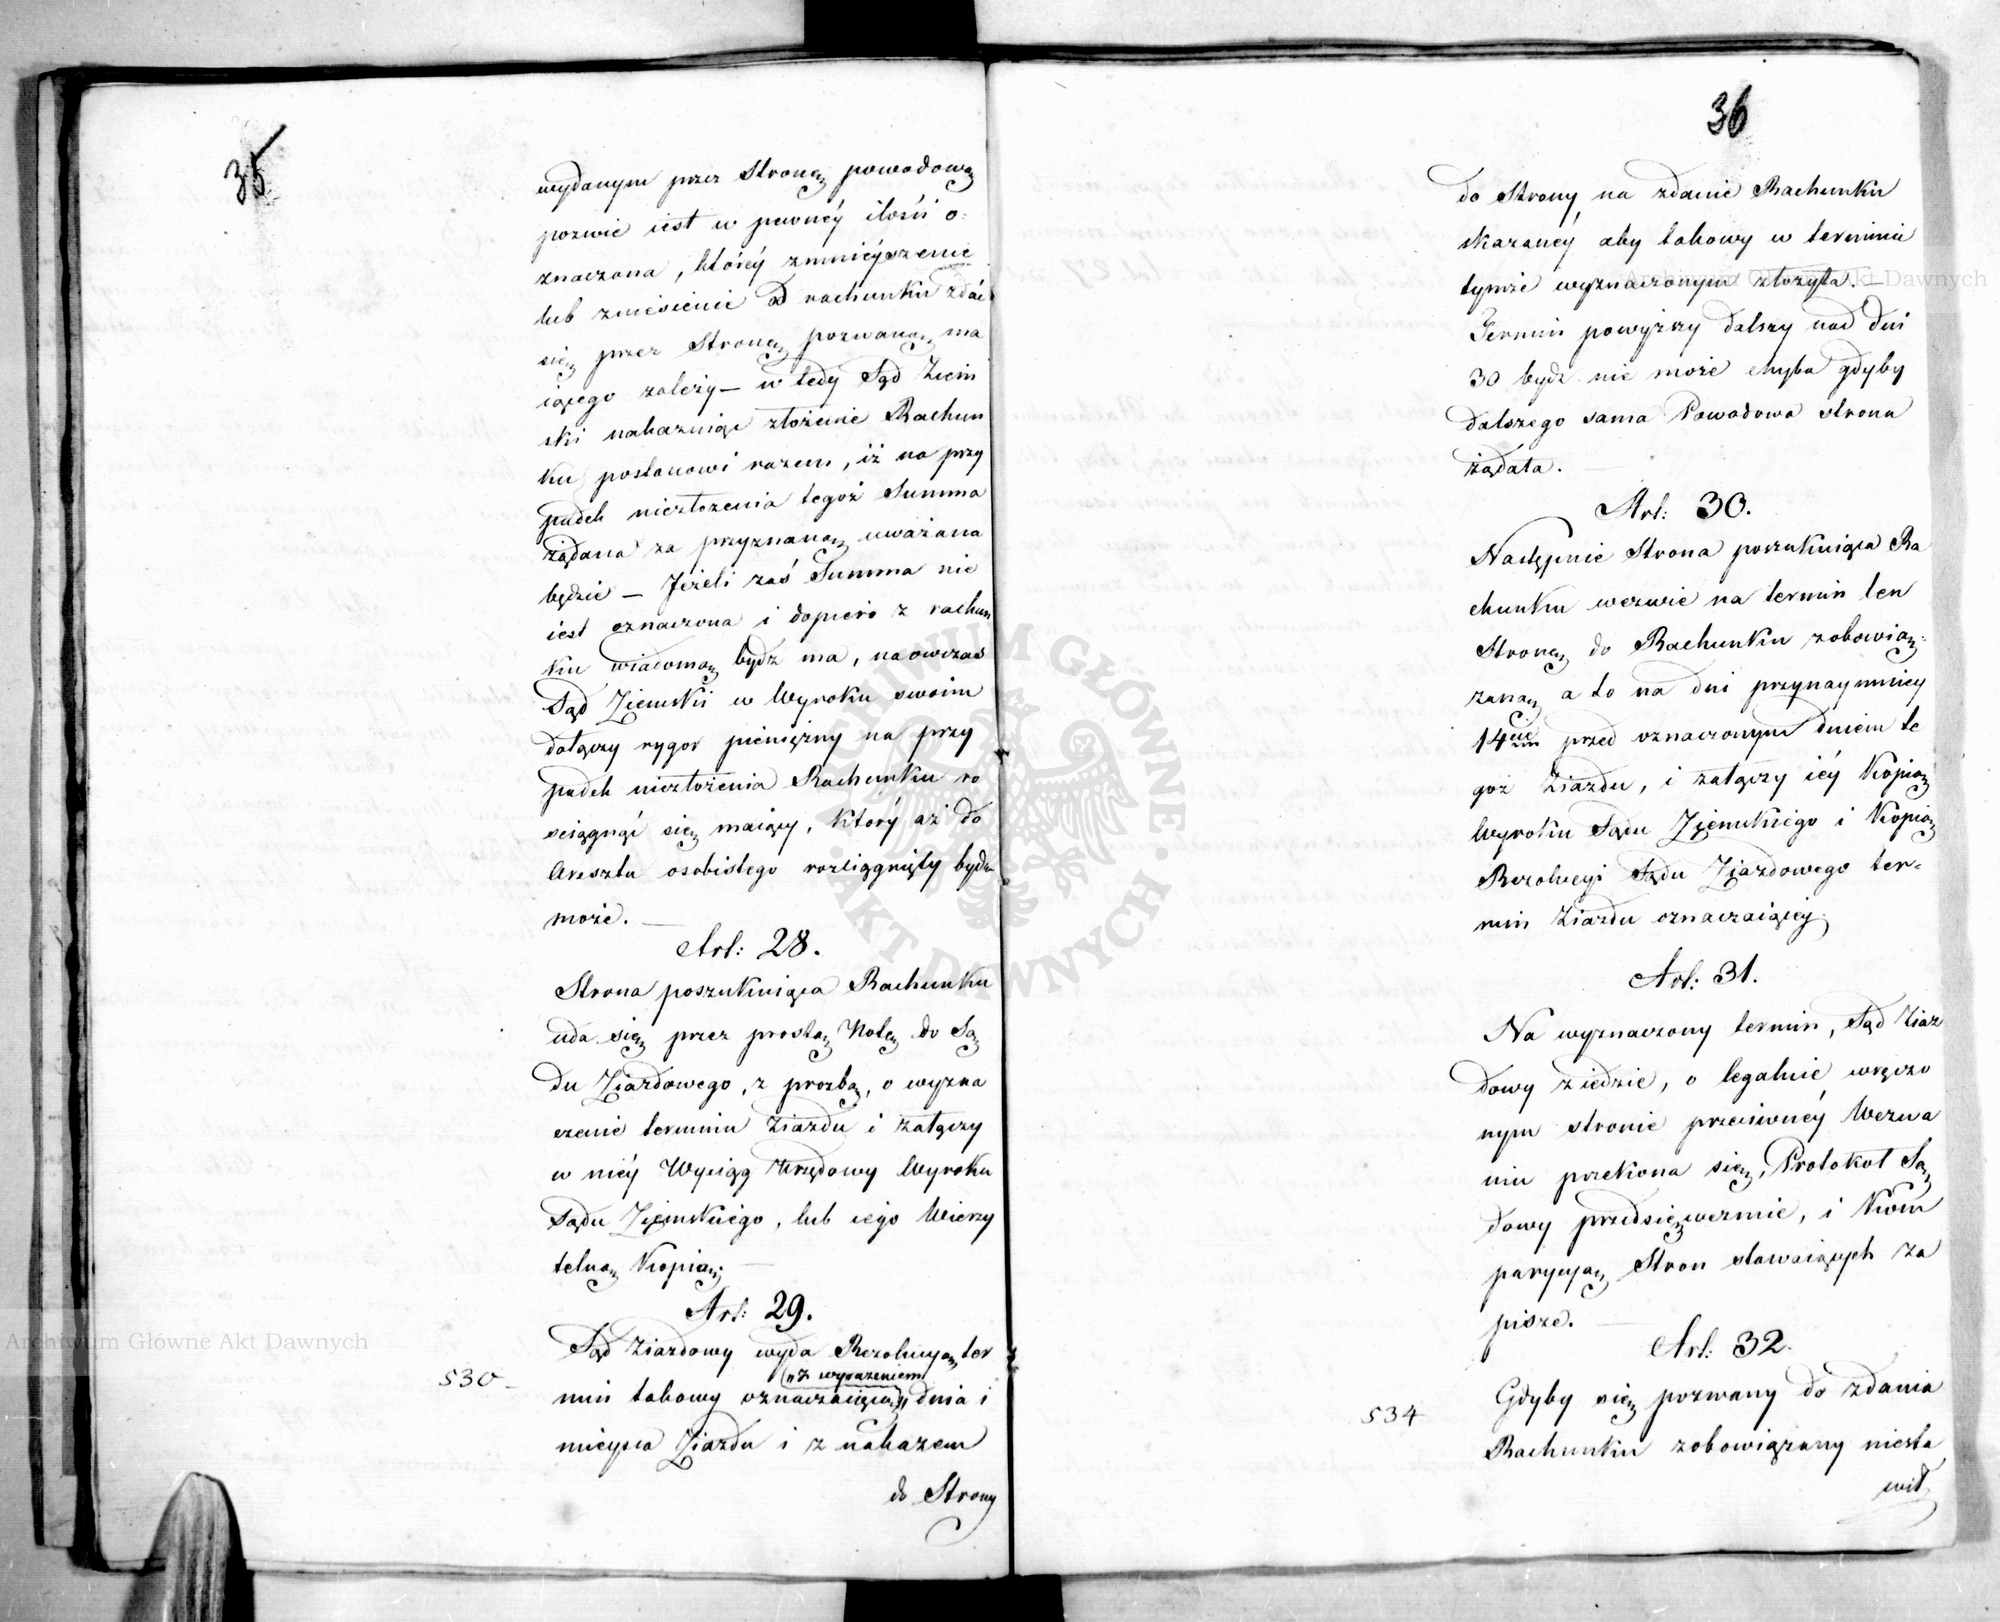 35
wydanym przez Stronę powodową
pozwie iest w pewnéy ilości o:
znaczona, któréy zmnieyszenie
lub zniesienie od rachunku zdać
się przez Stronę pozwaną ma
iącego zależy — w tedy Sąd Ziem
ski nakazuiąc złożenie Rachun
ku postanowi razem, iż na przy
padek niezłożenia tegoż Summa
żądana za przyznaną uważana
będzie — Jeżeli zaś Summa nie
iest oznaczona i dopiero z rachun
ku wiadomą bydz ma, naowczas
Sąd Ziemski w Wyroku swoim
dołączy rygor pieniężny na przy
padek niezłożenia Rachunku ro
sciągnąć się maiący, który aż do
Aresztu osobistego rozciągnięty bydz
może. —
Art: 28.
Strona poszukuiąca Rachunku
uda się przez prostą Notę do Są
du Ziazdowego, z prozbą, o wyzna
czenie terminu Ziazdu i załączy
w niéy Wyciąg Urzędowy Wyroku
Sądu Ziemskiego, lub iego Wierzy
telną Kopią. —
Art: 29.
Sąd Ziazdowy wyda Rezolucyą ter
"z wyrażeniem
530 — min takowy oznaczaiącą" dnia i
mieysca Ziazdu i z nakazem
do Strony
36
do Strony na zdanie Rachunku
skazanéy aby takowy w terminie
tymże wyznaczonym złożyła. —
Termin powyższy dalszy nad dni
30 bydz nie może chyba gdyby
dalszego sama Powodowa strona
żądała. —
Art: 30.
Następnie Strona poszukuiąca Ra
chunku wezwie na termin ten
Stronę do Rachunku zobowią:
zaną a to na dni przynaymniey
14cie przed oznaczonym dniem te
goż Ziazdu, i załączy iéy Kopią
Wyroku Sądu Ziemskiego i Kopią
Rezolucyi Sądu Ziazdowego ter=
min Ziazdu oznaczaiącéy
Art: 31.
Na wyznaczony termin, Sąd Ziaz
dowy ziedzie, o legalnie wręczo
nym stronie przeciwnéy Wezwa
niu przekona się, Protokoł Są
dowy przedsięwezmie, i Kom
parycyą Stron stawaiących za
pisze. —
Art: 32.
Gdyby się pozwany do zdania
534 Rachunku zobowiązany niesta
wił
Archiwum Główne Akt Dawnych
Archiwum Główne Akt Dawnych
ARCHIWUM GŁÓWNE · AKT DAWNYCH ·